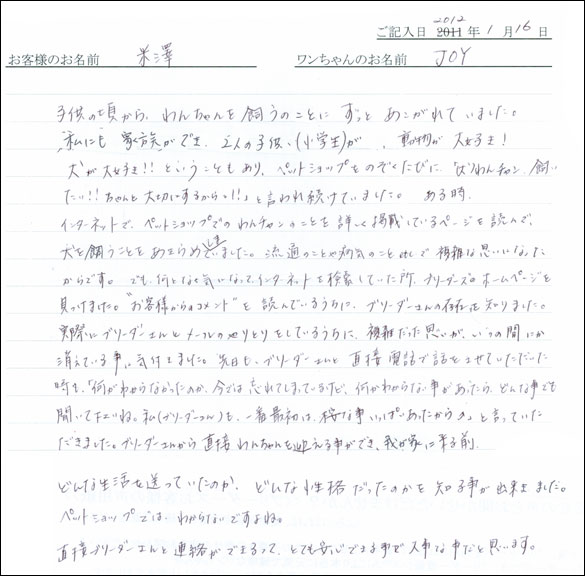 ご記入日 2012 2011 年 1 月 16 日
お客様のお名前 米澤 ワンちゃんのお名前 JOY
子供の頃から、わんちゃんを飼うのことに ずっと あこがれて いました。
私にも 家族ができ、2人の子供、(小学生)が、動物が 大好き!
犬が大好き!! ということもあり、ペットショップをのぞくたびに、「わんチャン 飼い
たい!! ちゃんと 大切にするから〜!!」と言われ続けていました。 ある時、
インターネットで、ペットショップでのわんチャンのことを詳しく掲載しているページを読んで、
犬を飼うことをあきらめていました。流通のことや病気のこと etc で 複雑な思いになった
からです。 でも、何となく気になって、インターネットを検索していた所、ブリーダーズのホームページを
見つけました。"お客様からのコメント"を 読んでいるうちに、ブリーダーさんの存在を知りました。
実際にブリーダーさんとメールのやりとりをしているうちに、複雑だった思いが、いつの間にか
消えている事に気付きました。先日も、ブリーダーさんと 直接電話で話をさせていただいた
時も、「何がわからなかったのか、今では忘れてしまっているけど、何かわからない事があったら、どんな事でも
聞いて下さいね。私(ブリーダーさん)も、一番最初は、様な事いっぱいあったから♪」と言っていた
だきました。ブリーダーさんから 直接わんちゃんを迎える事ができ、我が家に来る前、
どんな生活を送っていたのか、 どんな性格だったのかを 知る事が出来ました。
ペットショップでは、わからないですよね。
直接ブリーダーさんと連絡ができるって、とても安心できる事で大事な事だと思います。